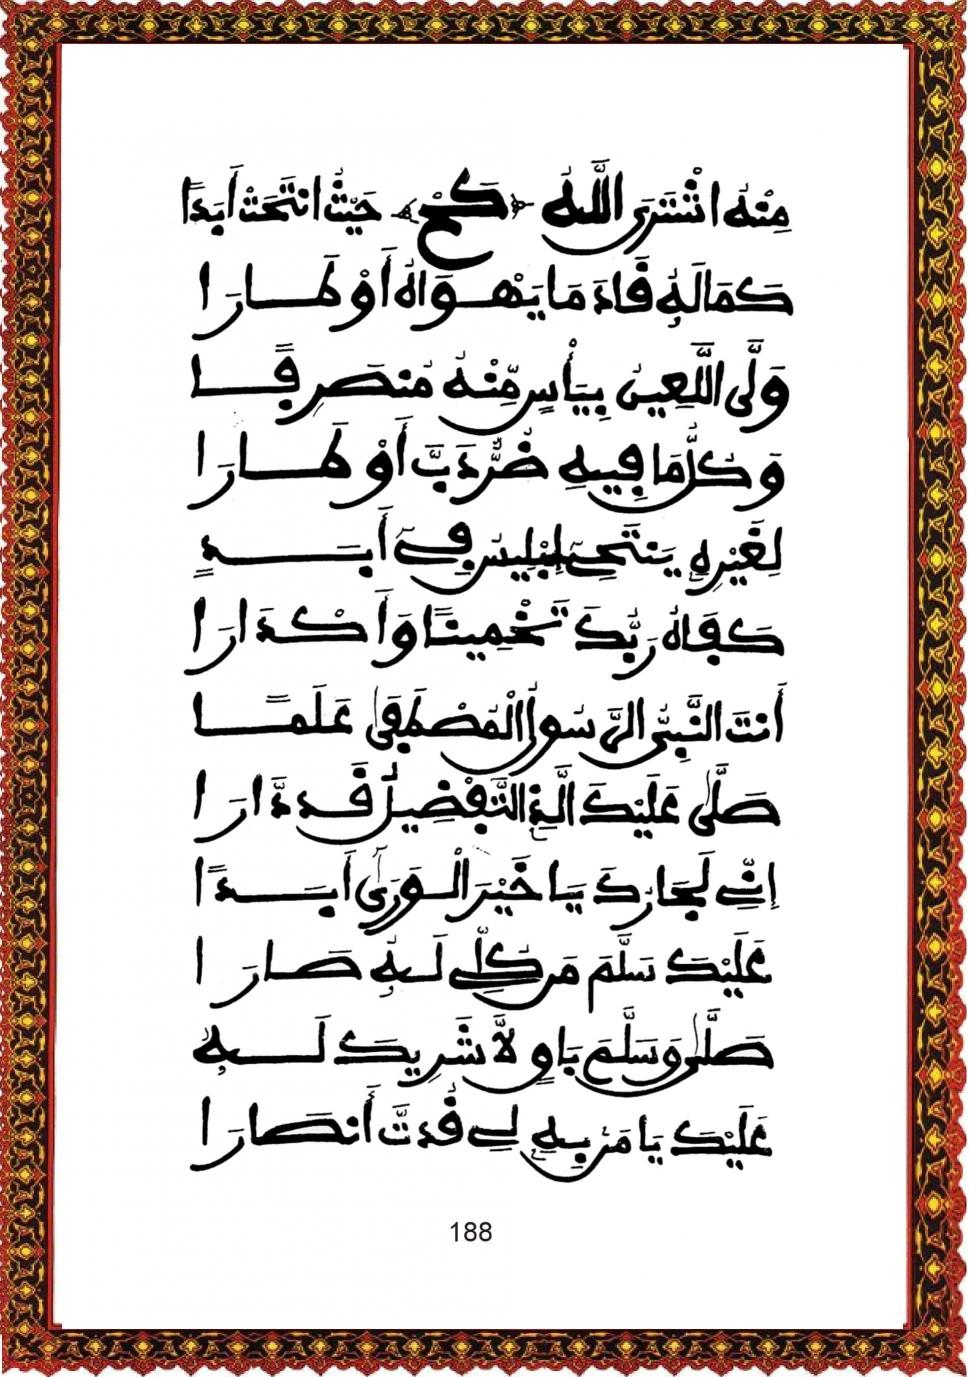 مِنْهُ اشْتَرَى اللَّهُ كحْ حَيْثُ انْتَحَتْ أَبَدًا
كَمَالَهُ قَادَ مَا يَهْوَاهُ أَوْطَارَا
وَلَّى اللَّعِينُ بِيَأْسٍ مِّنْهُ مُنصَرِفًا
وَكُلُّ مَا فِيهِ ضُرٌّ دَبَّ أَوْ طَارَا
لِغَيْرِهِ يَنتَحِي إِبْلِيسُ فِي أَبَدٍ
كَفَاهُ رَبُّكَ تَخْمِينًا وَأَكْدَارَا
أَنتَ النَّبِيُّ الرَّسُولُ الْمُصْطَفَى عَلَمًا
صَلَّى عَلَيْكَ الَّذِي التَّفْضِيلُ قَدْ دَّارَا
إِنِّي لَجَارُكَ يَا خَيْرَ الْوَرَى أَبَدًا
عَلَيْكَ سَلَّمَ مَن كُلِّي لَهُ صَارَا
صَلَّى وَسَلَّمَ بَاقٍ لَا شَرِيكَ لَهُ
عَلَيْكَ يَا مَن بِهِ لِي قُدتَّ أَنصَارَا
188